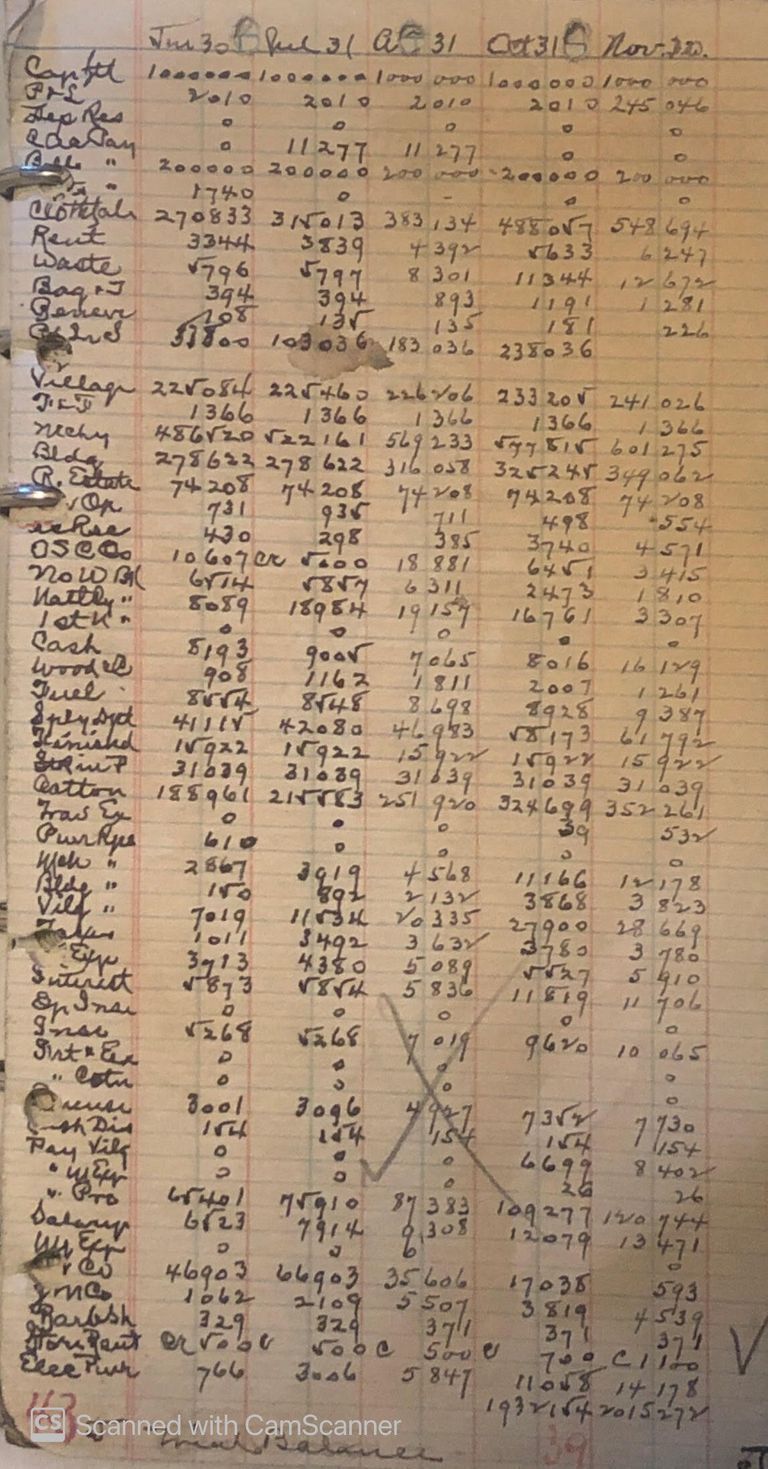 Jun 30 Jul 31 Aug 31 Oct 31 Nov. 30.
Capital 1000000 1000000 1000 000 1000000 1000 000
P & L 2010 2010 2010 2010 245 046
Dep Res 0 0 0 0 0
0 11277 11 277 0 0
" 200000 200000 200 000 200000 200 000
" 1740 0 - 0 0
270833 315013 383 134 488057 548 694
Rent 3344 3839 4 392 5633 6 247
Waste 5796 5797 8 301 11344 12 672
Bag & T 394 394 893 1191 1 281
108 135 135 181 226
33800 103036 183 036 238036
Village 225084 225460 226206 233205 241 026
T & T 1366 1366 1 366 1366 1 366
Mchy 486520 522161 569 233 597815 601 275
Bldg 278622 278 622 316 058 325245 349 062
R. Estate 74208 74208 74 208 74208 74 208
Op 731 935 711 498 554
430 298 385 3740 4 571
OSCCo 10607 cr 5000 18 881 6451 3 415
No W Bk 6514 5857 6 311 2473 1 810
" 8089 18984 19 159 16761 3 307
1st N " 0 0 0 0 0
Cash 8193 9005 7 065 8016 16 129
Wood & C 908 1162 1 811 2007 1 261
Fuel 8554 8548 8 698 8928 9 387
Sply Dpt 41115 42080 46 983 58173 61 792
Finished 15922 15922 15 922 15922 15 922
31039 31039 31 039 31039 31 039
Cotton 188961 215583 251 920 324699 352 261
Trav Ex 0 0 0 39 532
Pwr Rps 610 0 0 0 0
Mch " 2867 3919 4 568 11166 12 178
Bldg " 150 892 2 132 3868 3 823
Vilg " 7019 11534 20 335 27900 28 669
Taxes 1011 3492 3 632 3780 3 780
Exp 3713 4380 5 089 5527 5 910
Interest 5873 5854 5 836 11819 11 706
Op Insu 0 0 0 0 0
Insu 5268 5268 7 019 9620 10 065
0 0 0 0
" Cotn 0 0 0 0
3001 3096 4 927 7352 7 730
Dis 154 154 154 154 154
Pay Vilg 0 0 0 6699 8 402
" M Exp 0 0 0 26 26
" Pro 65401 75910 87 383 109277 120 744
Salary 6523 7914 9 308 12079 13 471
Exp 0 0 0 0
Co 46903 66903 35 606 17038 593
Co 1062 2109 5 507 3819 4 539
329 329 371 371 371
Rent cr 500 c 500 c 500 c 700 c 1 100
Elec Pwr 766 3006 5 847 11058 14 178
1932154 2015272
Trial Balance
39
CS Scanned with CamScanner